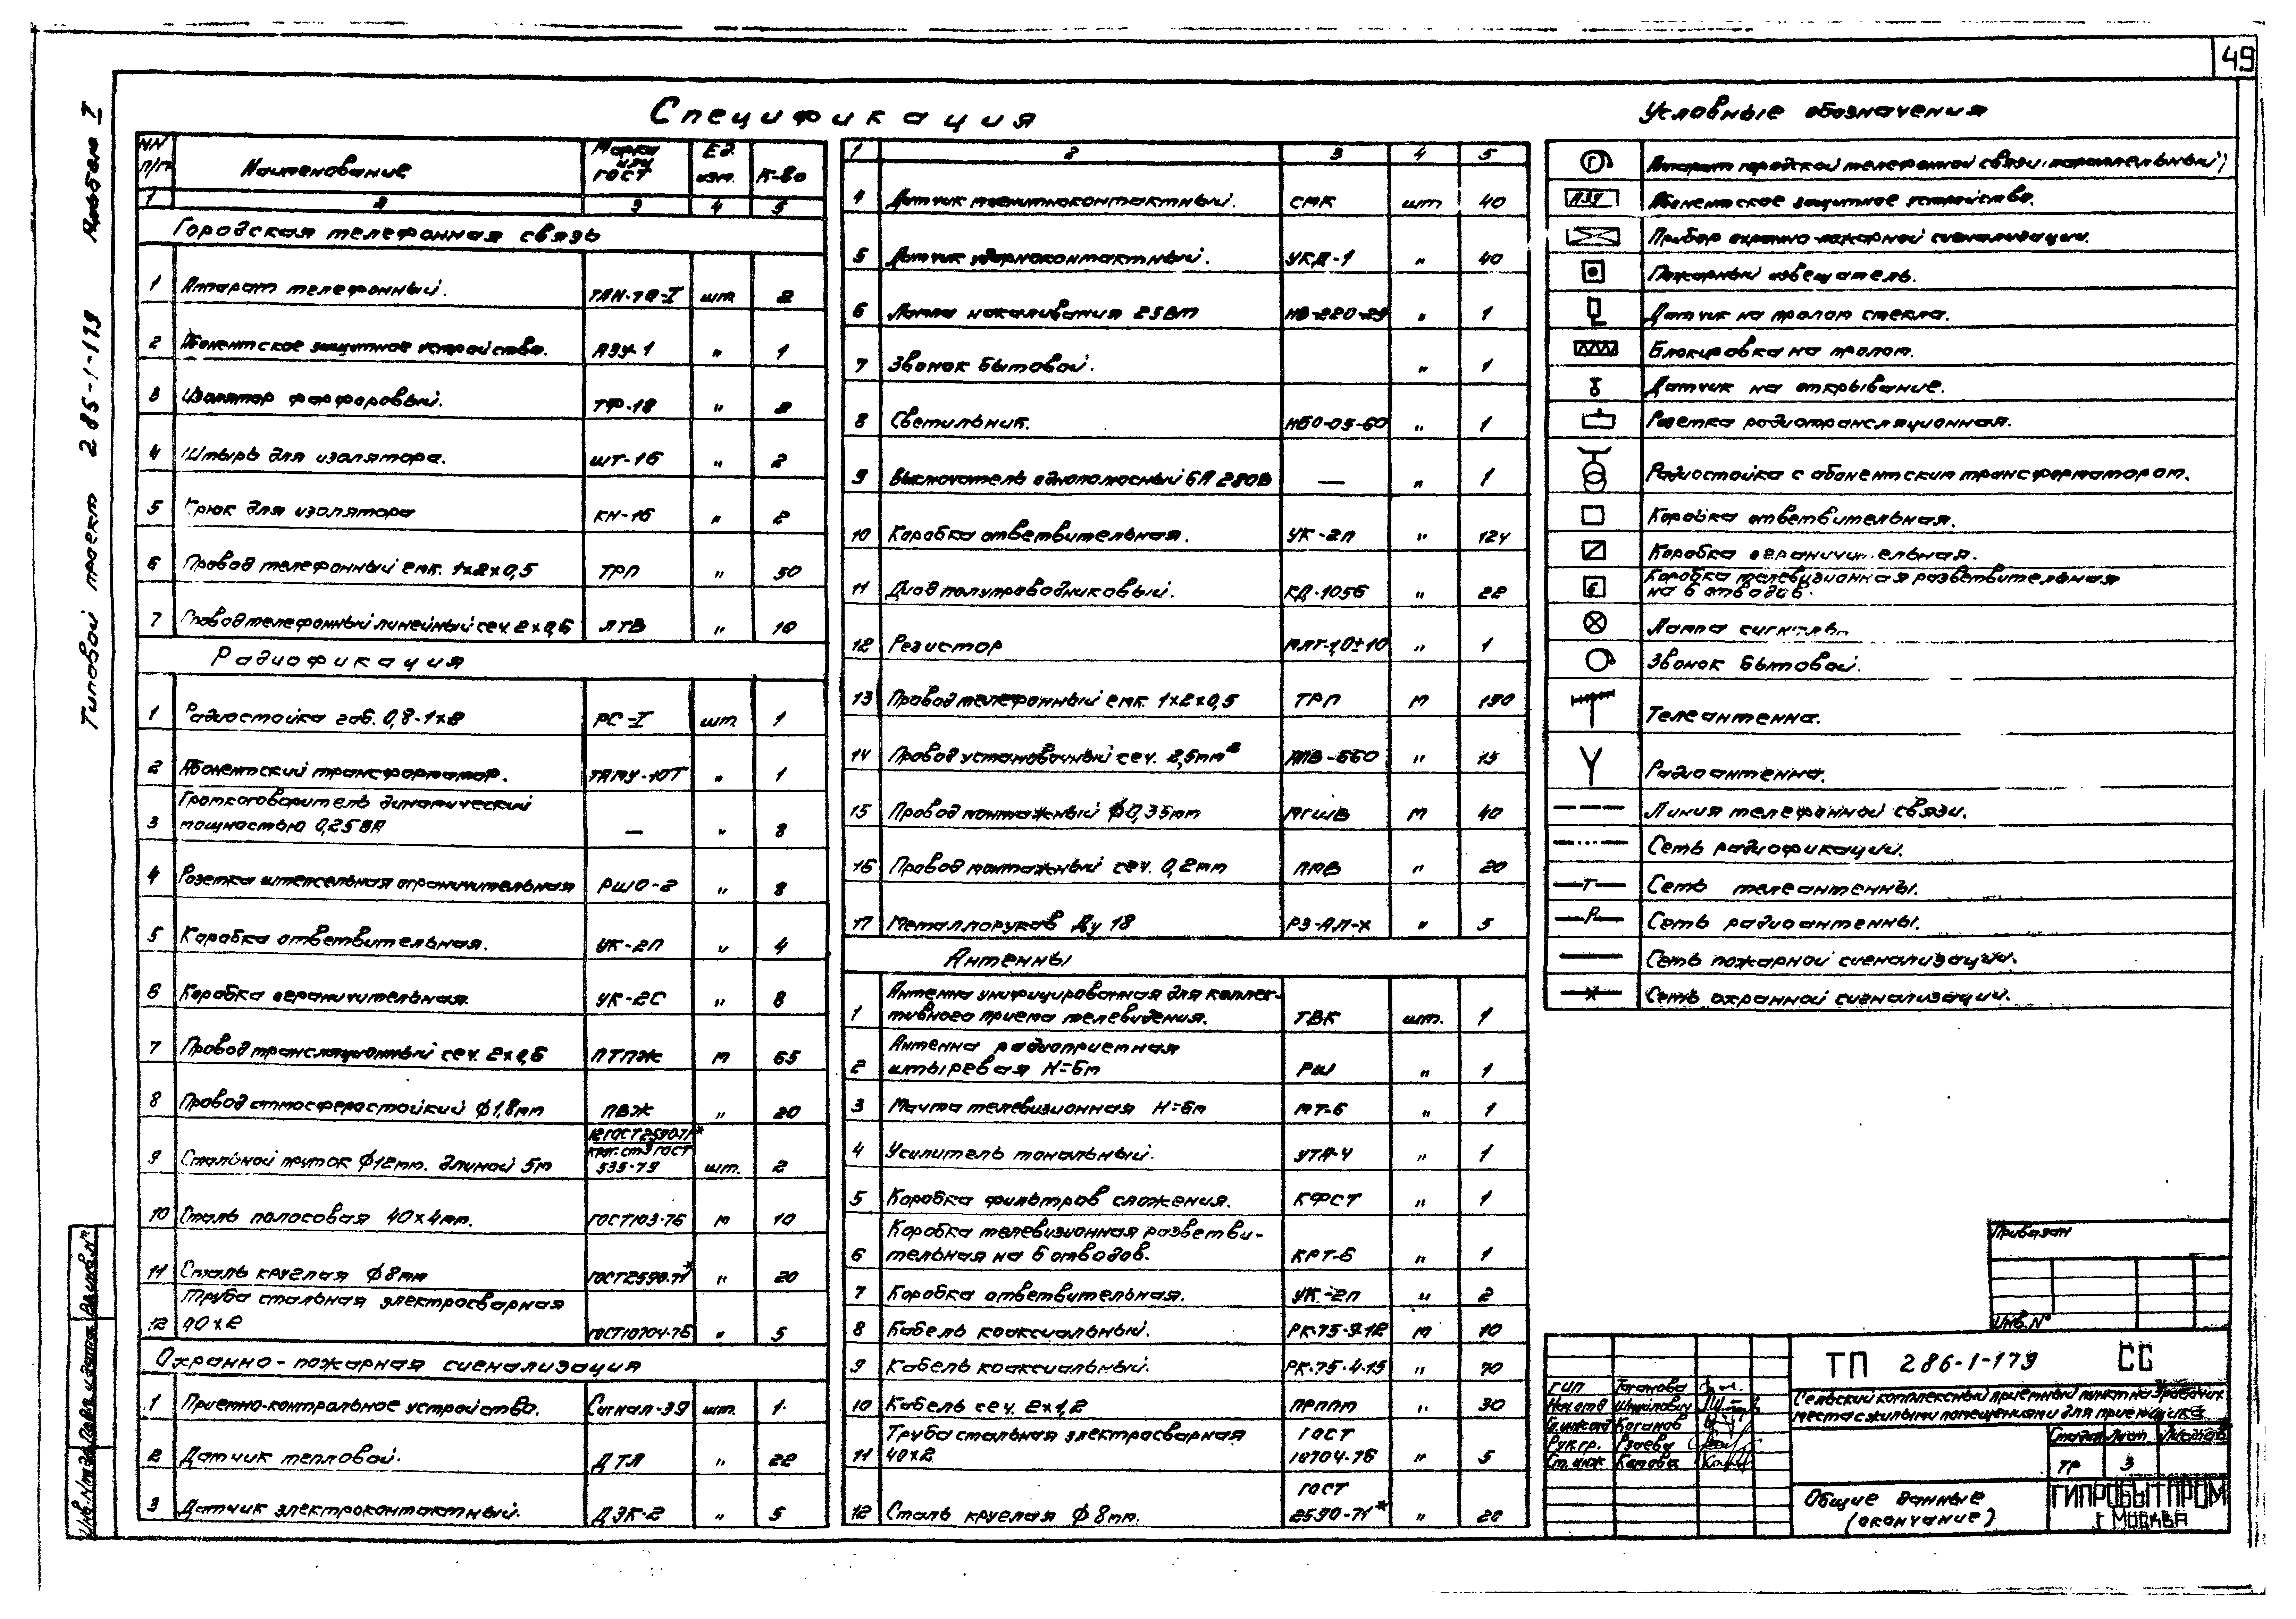 49
Типовой проект 285-1-179 Альбом I
Спецификация
NN п/п Наименование Марка или ГОСТ Ед. изм. К-во
1 2 3 4 5
Городская телефонная связь
1 Аппарат телефонный. шт. 2
2 Абонентское защитное устройство. АЗУ-1 " 1
3 Изолятор фарфоровый. ТФ-18 " 2
4 Штырь для изолятора. ШТ-16 " 2
5 Крюк для изолятора КН-16 " 2
6 Провод телефонный емк. 1х2х0,5 ТРП " 50
7 Провод телефонный линейный сеч. 2х0,6 ЛТВ " 10
Радиофикация
1 Радиостойка габ. 0,8-1х8 РС-I шт. 1
2 Абонентский трансформатор. ТАМУ-10Т " 1
Громкоговоритель динамический
3 мощностью 0,25ВА — " 8
4 Розетка штепсельная ограничительная РШО-2 " 8
5 Коробка ответвительная. УК-2П " 4
6 Коробка ограничительная. УК-2С " 8
7 Провод трансляционный сеч. 2х0,6 ПТПЖ м 65
8 Провод атмосферостойкий ф1,8мм ПВЖ " 20
12 ГОСТ 2590-71*
круг. ст3 ГОСТ
9 Стальной пруток ф12мм. длиной 5м 535-79 шт. 2
10 Сталь полосовая 40х4мм. ГОСТ103-76 м 10
11 Сталь круглая ф8мм ГОСТ2590-71* " 20
Труба стальная электросварная
12 40х2 ГОСТ10704-76 " 5
Охранно-пожарная сигнализация
1 Приемно-контрольное устройство. шт. 1
2 Датчик тепловой. ДТЛ " 22
3 Датчик электроконтактный. ДЭК-2 " 5
1 2 3 4 5
4 Датчик магнитноконтактный. СМК шт 40
5 Датчик ударноконтактный. УКД-1 " 40
6 Лампа накаливания 25Вт " 1
7 Звонок бытовой. " 1
8 Светильник. НБО-05-60 " 1
9 Выключатель однополюсный — " 1
10 Коробка ответвительная. УК-2П " 124
11 Диод полупроводниковый. КД-105б " 22
12 Резистор МЛТ-1,0±10 " 1
13 Провод телефонный емк. 1х2х0,5 ТРП м 190
14 Провод установочный сеч. 2,5мм² " 15
15 Провод монтажный ф0,35мм МГШВ м 40
16 Провод монтажный сеч. 0,2мм ПМВ " 20
17 Металлорукав Ду 18 РЗ-АЛ-Х " 5
Антенны
Антенна унифицированная для коллек-
1 тивного приема телевидения. ТВК шт. 1
Антенна радиоприемная
2 штыревая Н=6м РШ " 1
3 Мачта телевизионная Н=6м МТ-6 " 1
4 Усилитель тональный. УТА-4 " 1
5 Коробка фильтров сложения. КФСТ " 1
Коробка телевизионная разветви-
6 тельная на 6 отводов. КРТ-6 " 1
7 Коробка ответвительная. УК-2П " 2
8 Кабель коаксиальный. РК-75-9-12 м 10
9 Кабель коаксиальный. РК-75-4-15 " 70
10 Кабель сеч. 2х1,2 ПРППМ " 30
Труба стальная электросварная ГОСТ
11 40х2 10704-76 " 5
ГОСТ
12 Сталь круглая ф8мм. 2590-71* "
Условные обозначения
Г Аппарат городской телефонной связи (параллельный)
АЗУ Абонентское защитное устройство.
Прибор охранно пожарной сигнализации.
Пожарный извещатель.
Датчик на пролом стекла.
Блокировка на пролом.
Датчик на открывание.
Розетка радиотрансляционная.
Радиостойка с абонентским трансформатором.
Коробка ответвительная.
Коробка ограничительная.
6 Коробка телевизионная разветвительная
на 6 отводов.
Лампа
Звонок бытовой.
Телеантенна.
Радиоантенна.
Линия телефонной связи.
Сеть радиофикации.
Т Сеть телеантенны.
Р Сеть радиоантенны.
Сеть пожарной сигнализации.
Сеть охранной сигнализации.
Привязан
Инв.N°
ТП 286-1-179 СС
Сельский комплексный приемный пункт на 3 рабочих
места с жилыми помещениями для приемщика
ГИП
Нач.отд
Гл.инж.отд Коганов
Рук.гр.
Ст.инж
Стадия Лист Листов
ТР 3
Общие данные
(окончание)
ГИПРОБЫТПРОМ
г Москва
Инв.N°подл Подп и дата Взам.инв.N°